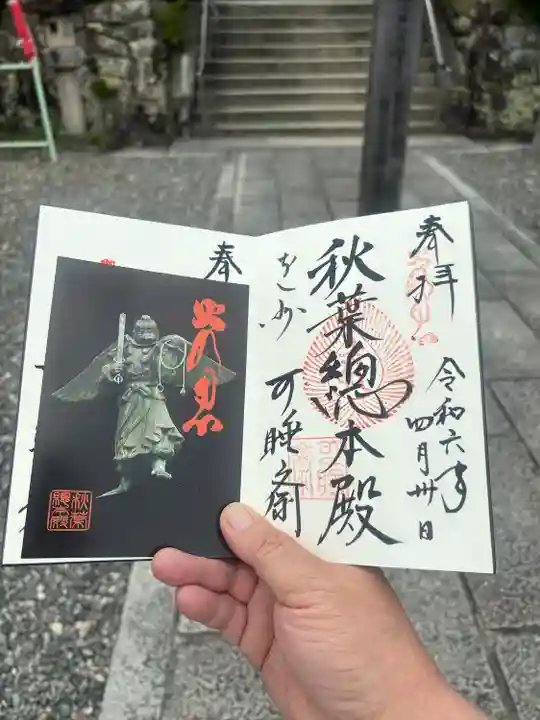 奉拝
令和六年
四月卅日
秋葉總本殿
可睡斎
奉
火の用
秋葉
總本殿